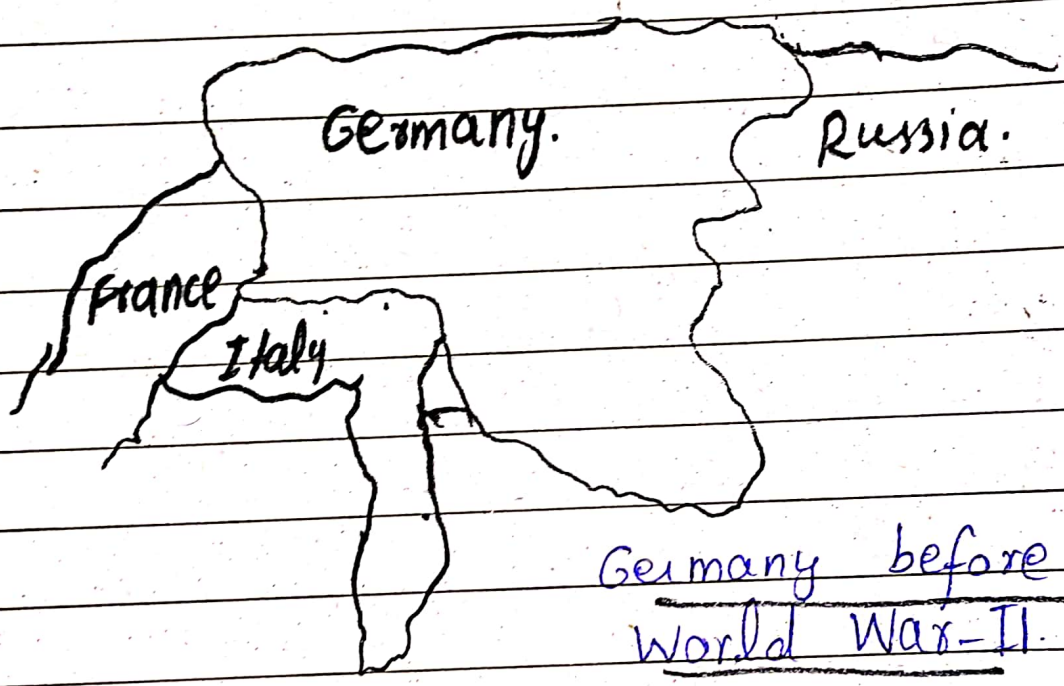 Germany.
Russia.
France
Italy
Germany before
World War-II.